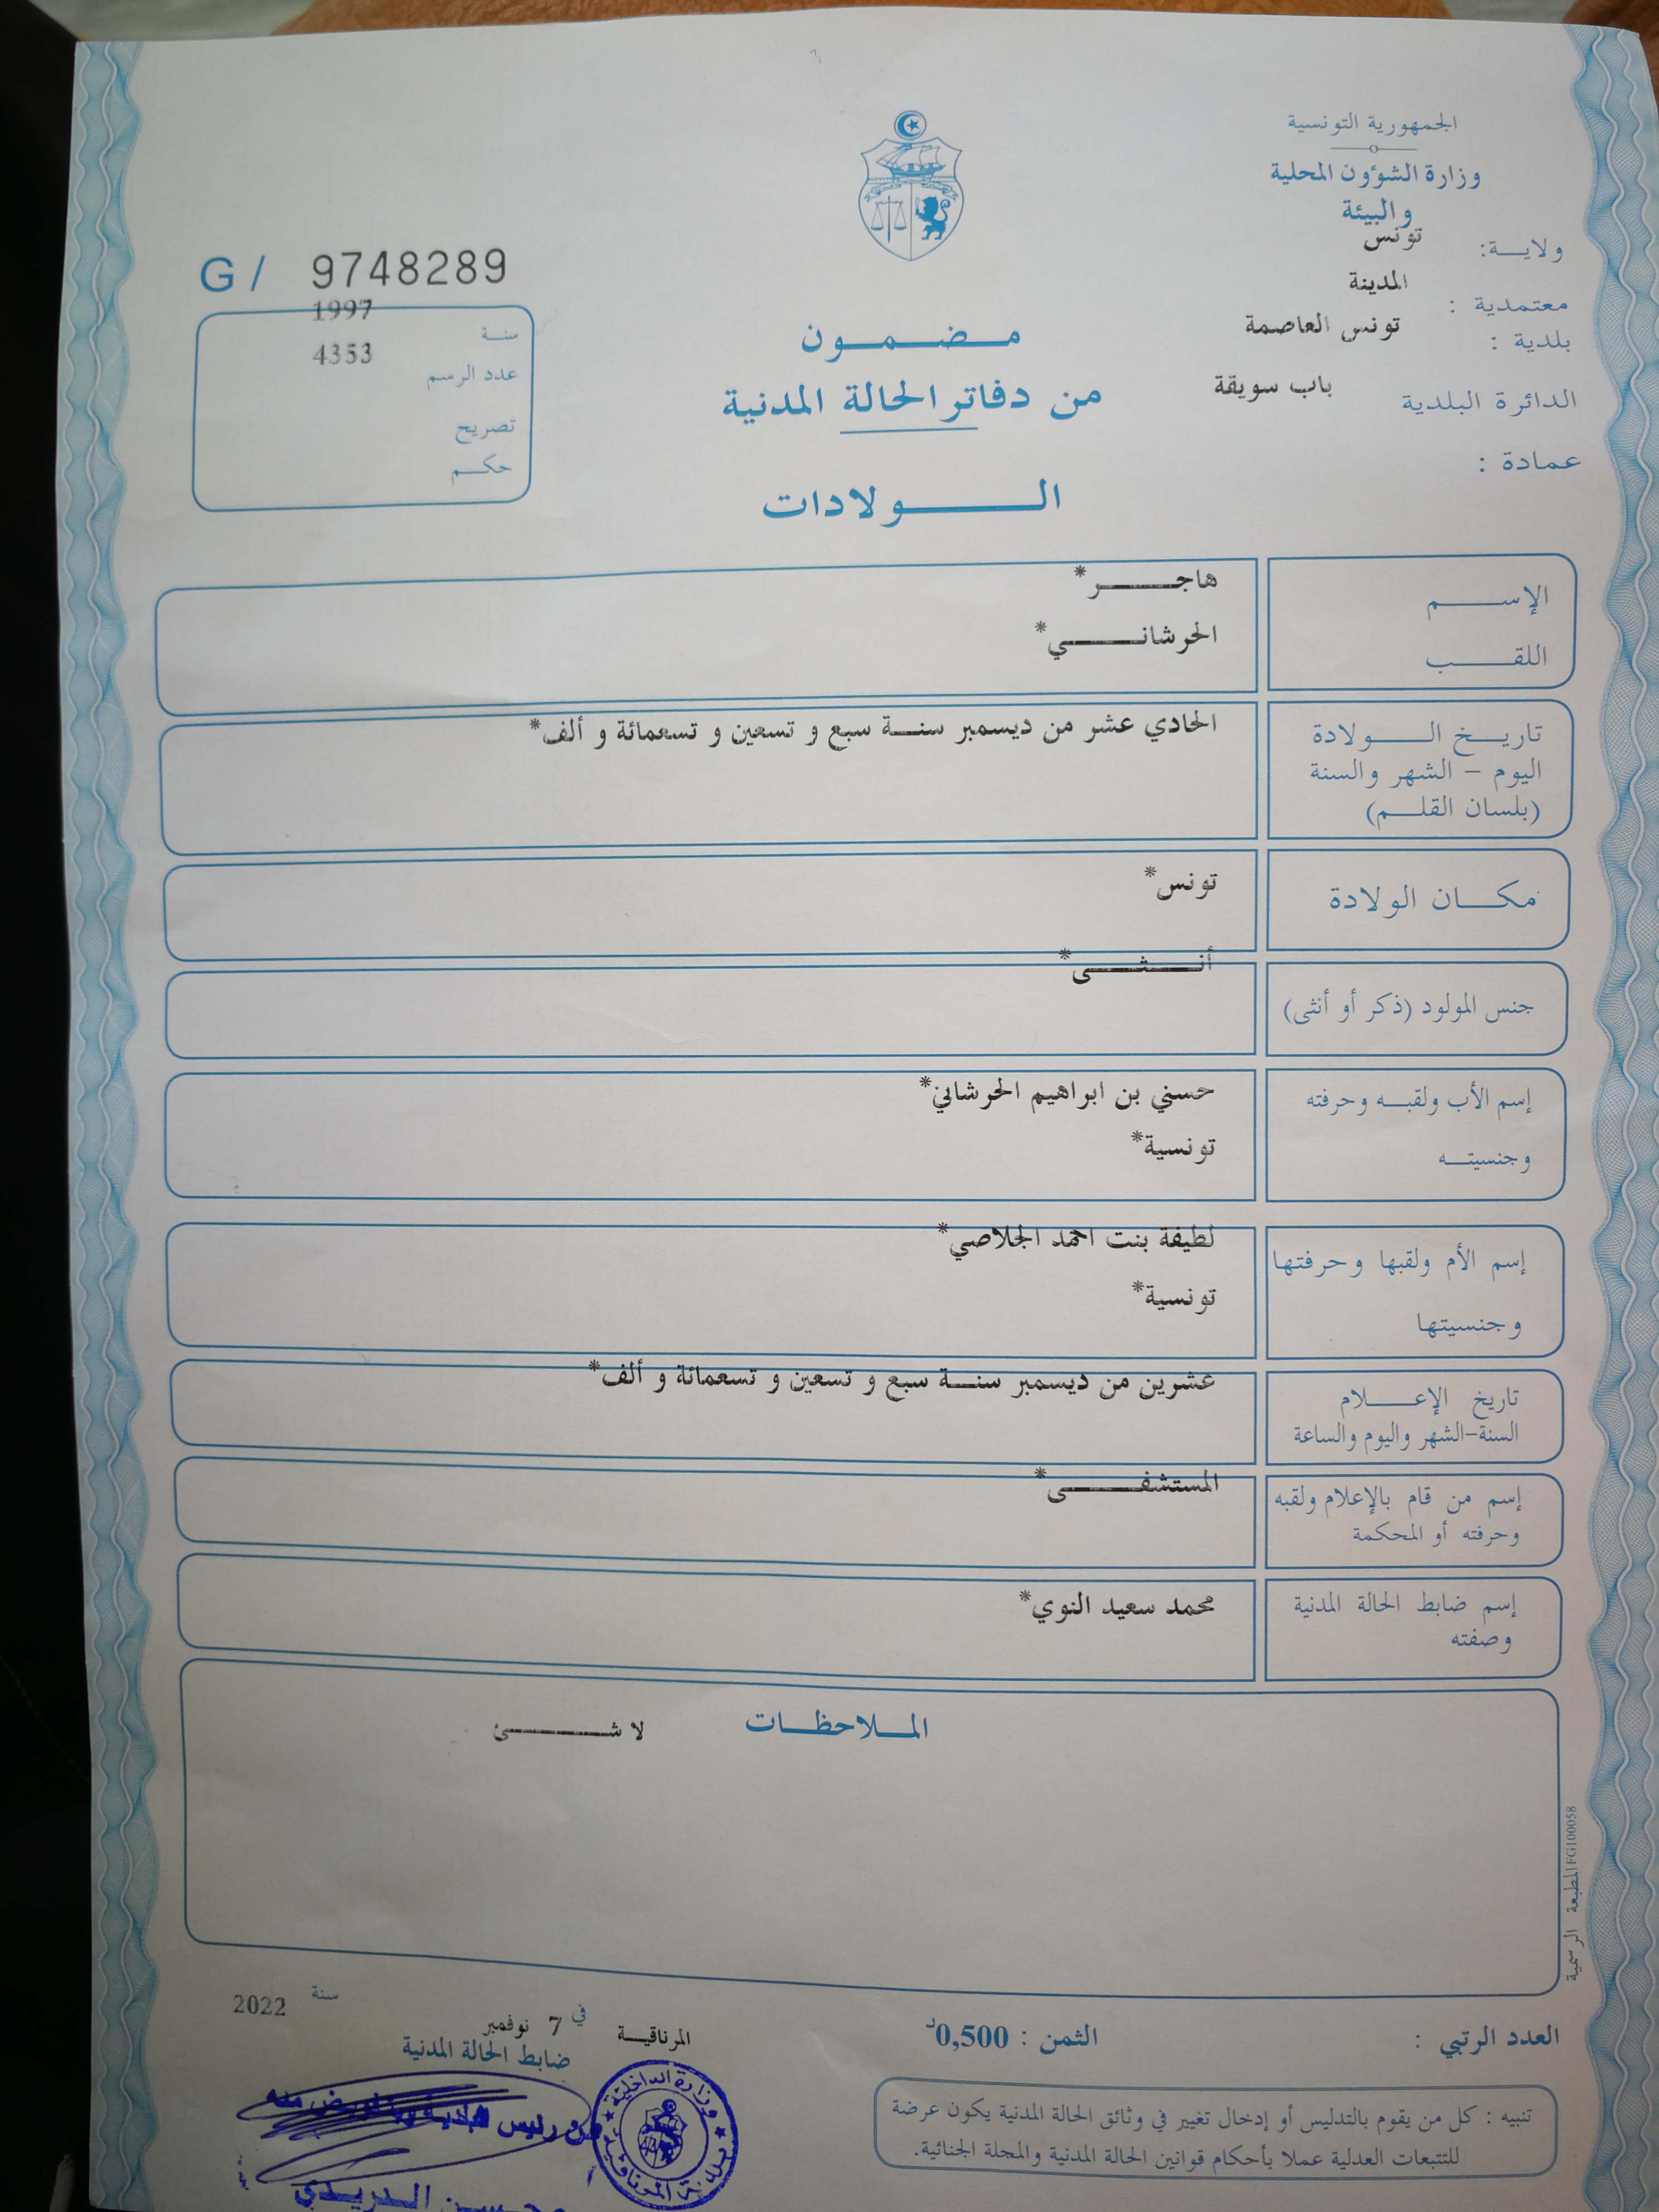 الجمهورية التونسية
وزارة الشؤون المحلية
والبيئة
ولايـــة: تونس
معتمدية : المدينة
بلدية : تونس العاصمة
الدائرة البلدية باب سويقة
عمادة :
G/ 9748289
سنـة 1997
عدد الرسم 4353
تصريح
حكــم
مـــضـــمـــون
من دفاتر الحالة المدنية
الـــــولادات
الإســـــم هاجـــــر*
اللقـــــب الحرشانـــــي*
تاريــخ الـــــولادة الحادي عشر من ديسمبر سنـــة سبع و تسعين و تسعمائة و ألف*
اليوم – الشهر والسنة
(بلسان القلـــم)
مكـــان الولادة تونس*
جنس المولود (ذكر أو أنثى) أنـــثـــى*
إسم الأب ولقبـــه وحرفته حسني بن ابراهيم الحرشاني*
وجنسيتـــه تونسية*
إسم الأم ولقبها وحرفتها لطيفة بنت احمد الجلاصي*
وجنسيتها تونسية*
تاريخ الإعـــــلام عشرين من ديسمبر سنـــة سبع و تسعين و تسعمائة و ألف*
السنة-الشهر واليوم والساعة
إسم من قام بالإعلام ولقبه المستشفـــــى*
وحرفته أو المحكمة
إسم ضابط الحالة المدنية محمد سعيد النوي*
وصفته
المـــلاحظـــات لا شـــــئ
المطبعة الرسمية FG100058
العدد الرتبي :
الثمن : 0,500د
المرناقيـــة في 7 نوفمبر سنة 2022
ضابط الحالة المدنية
عن رئيس البلدية وبتفويض منه
وزارة الداخلية
بلدية المرناقية
محسن الدريدي
تنبيه : كل من يقوم بالتدليس أو إدخال تغيير في وثائق الحالة المدنية يكون عرضة
للتتبعات العدلية عملا بأحكام قوانين الحالة المدنية والمجلة الجنائية.